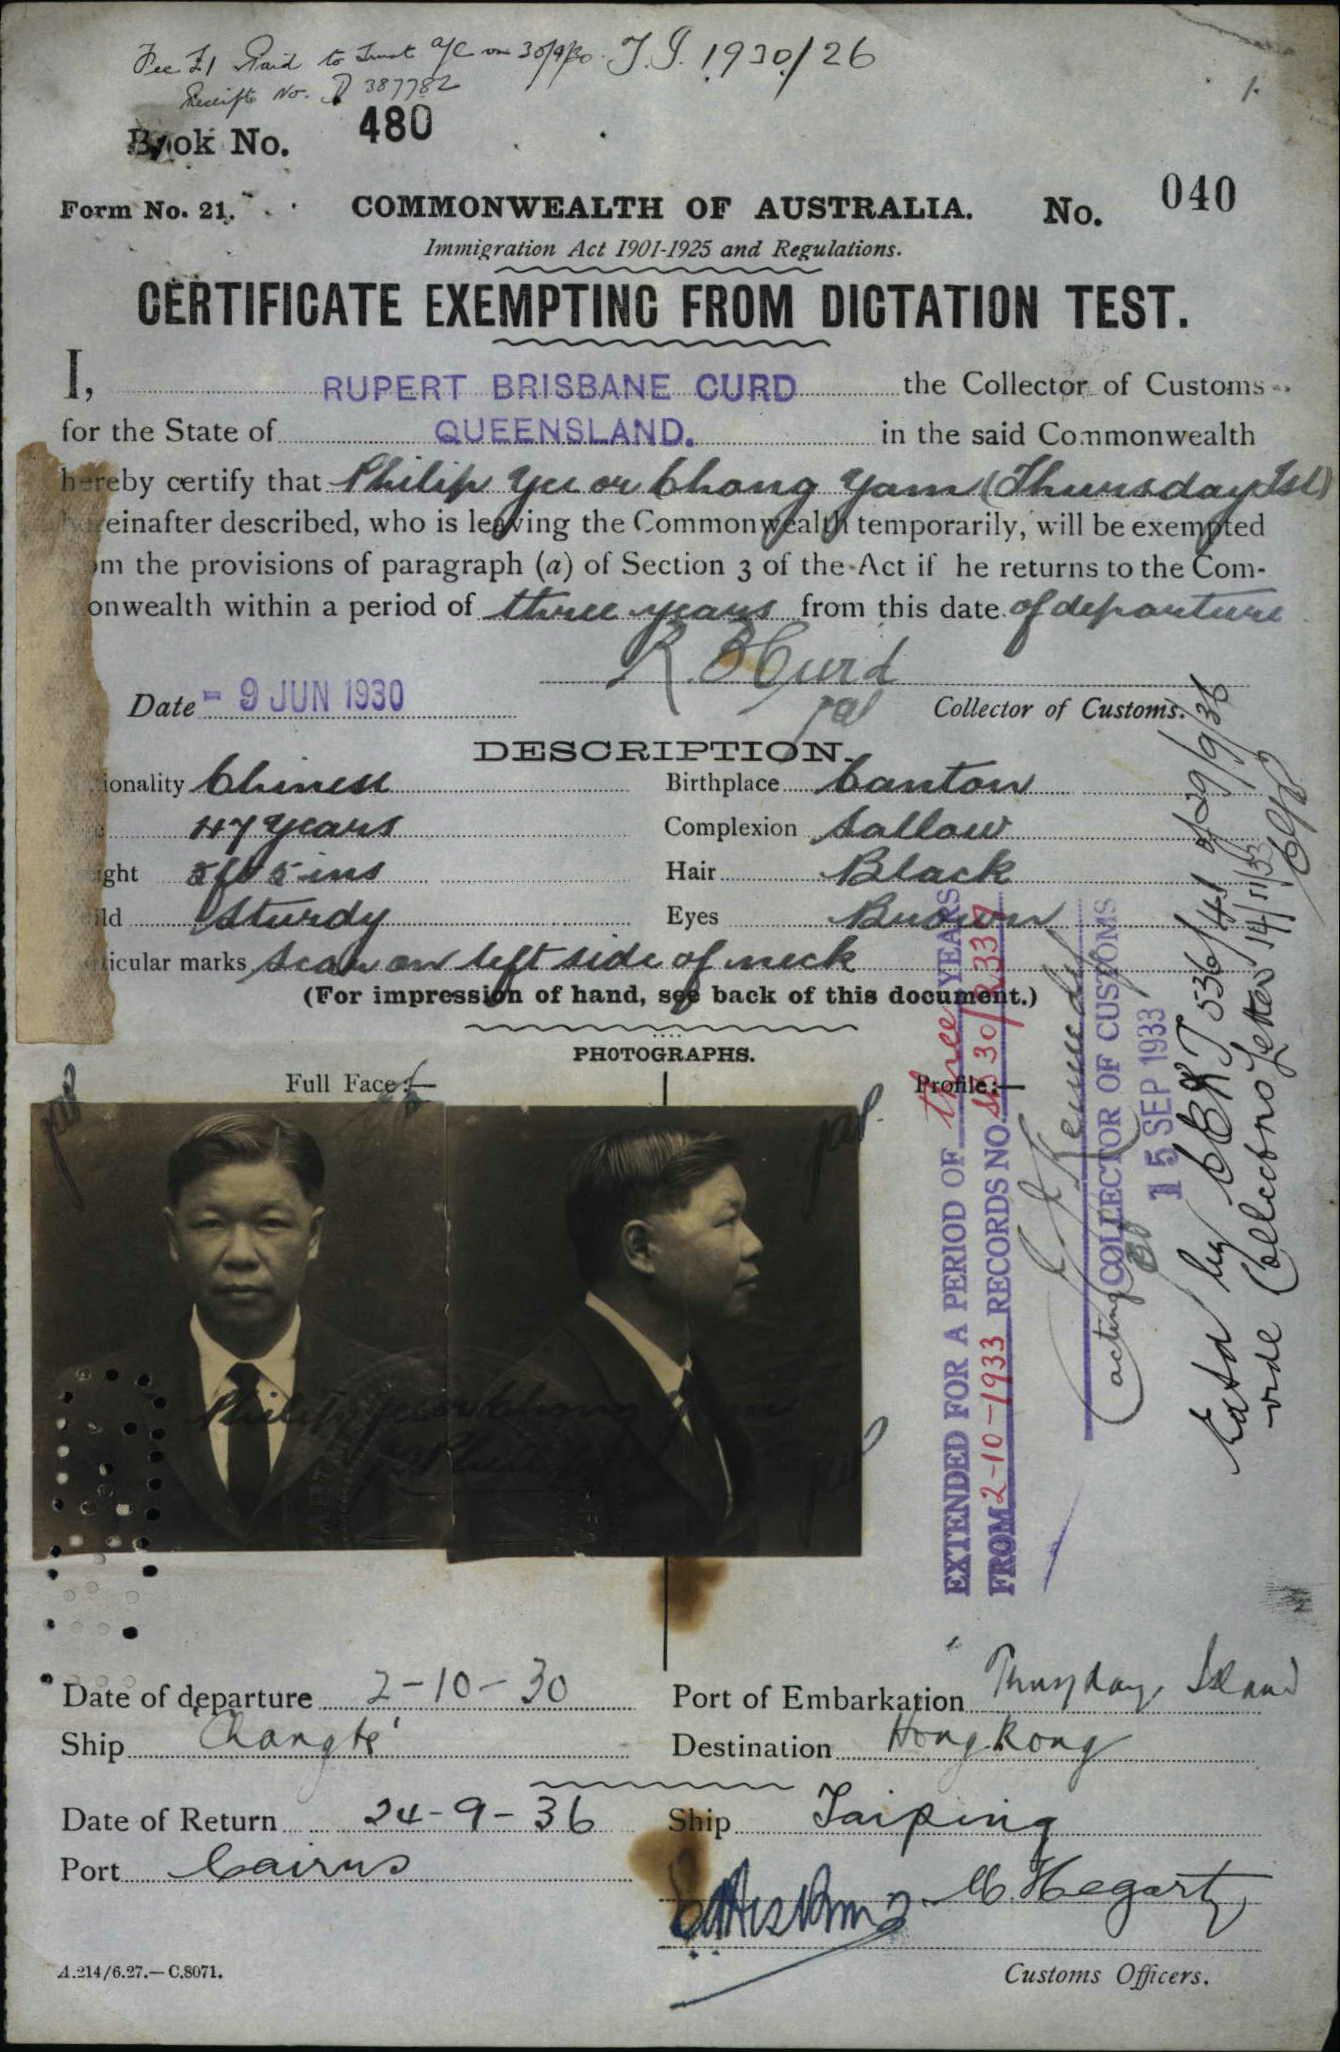 Fee £1 Paid to Trust a/c on 30/9/30. T.I. 1930/26
Receipt No. D 387782
1.
Book No. 480
Form No. 21. COMMONWEALTH OF AUSTRALIA. No. 040
Immigration Act 1901-1925 and Regulations.
CERTIFICATE EXEMPTING FROM DICTATION TEST.
I, RUPERT BRISBANE CURD the Collector of Customs
for the State of QUEENSLAND. in the said Commonwealth
hereby certify that Philip Yee or Chong Yam (Thursday Isl)
hereinafter described, who is leaving the Commonwealth temporarily, will be exempted
om the provisions of paragraph (a) of Section 3 of the Act if he returns to the Com-
onwealth within a period of three years from this date of departure
R. B Curd
Date - 9 JUN 1930 Collector of Customs.
DESCRIPTION.
ionality Chinese Birthplace Canton
47 years Complexion Sallow
ight 5 ft 5 ins Hair Black
ild Sturdy Eyes Brown
ticular marks Scar on left side of neck
(For impression of hand, see back of this document.)
PHOTOGRAPHS.
Full Face:— Profile:—
Philip Yee or Chong Yam
EXTENDED FOR A PERIOD OF three YEARS
FROM 2-10-1933 RECORDS NO.
Kennedy
acting COLLECTOR OF CUSTOMS
15 SEP 1933
Extd by CEDT 536/41 of 29/9/36
vide Collectors Letter 14/11/33
Date of departure 2-10-30 Port of Embarkation Thursday Island
Ship 'Changte' Destination Hong Kong
Date of Return 24-9-36 Ship Taiping
Port Cairns
M. Hegarty
A.214/6.27.—C.8071. Customs Officers.